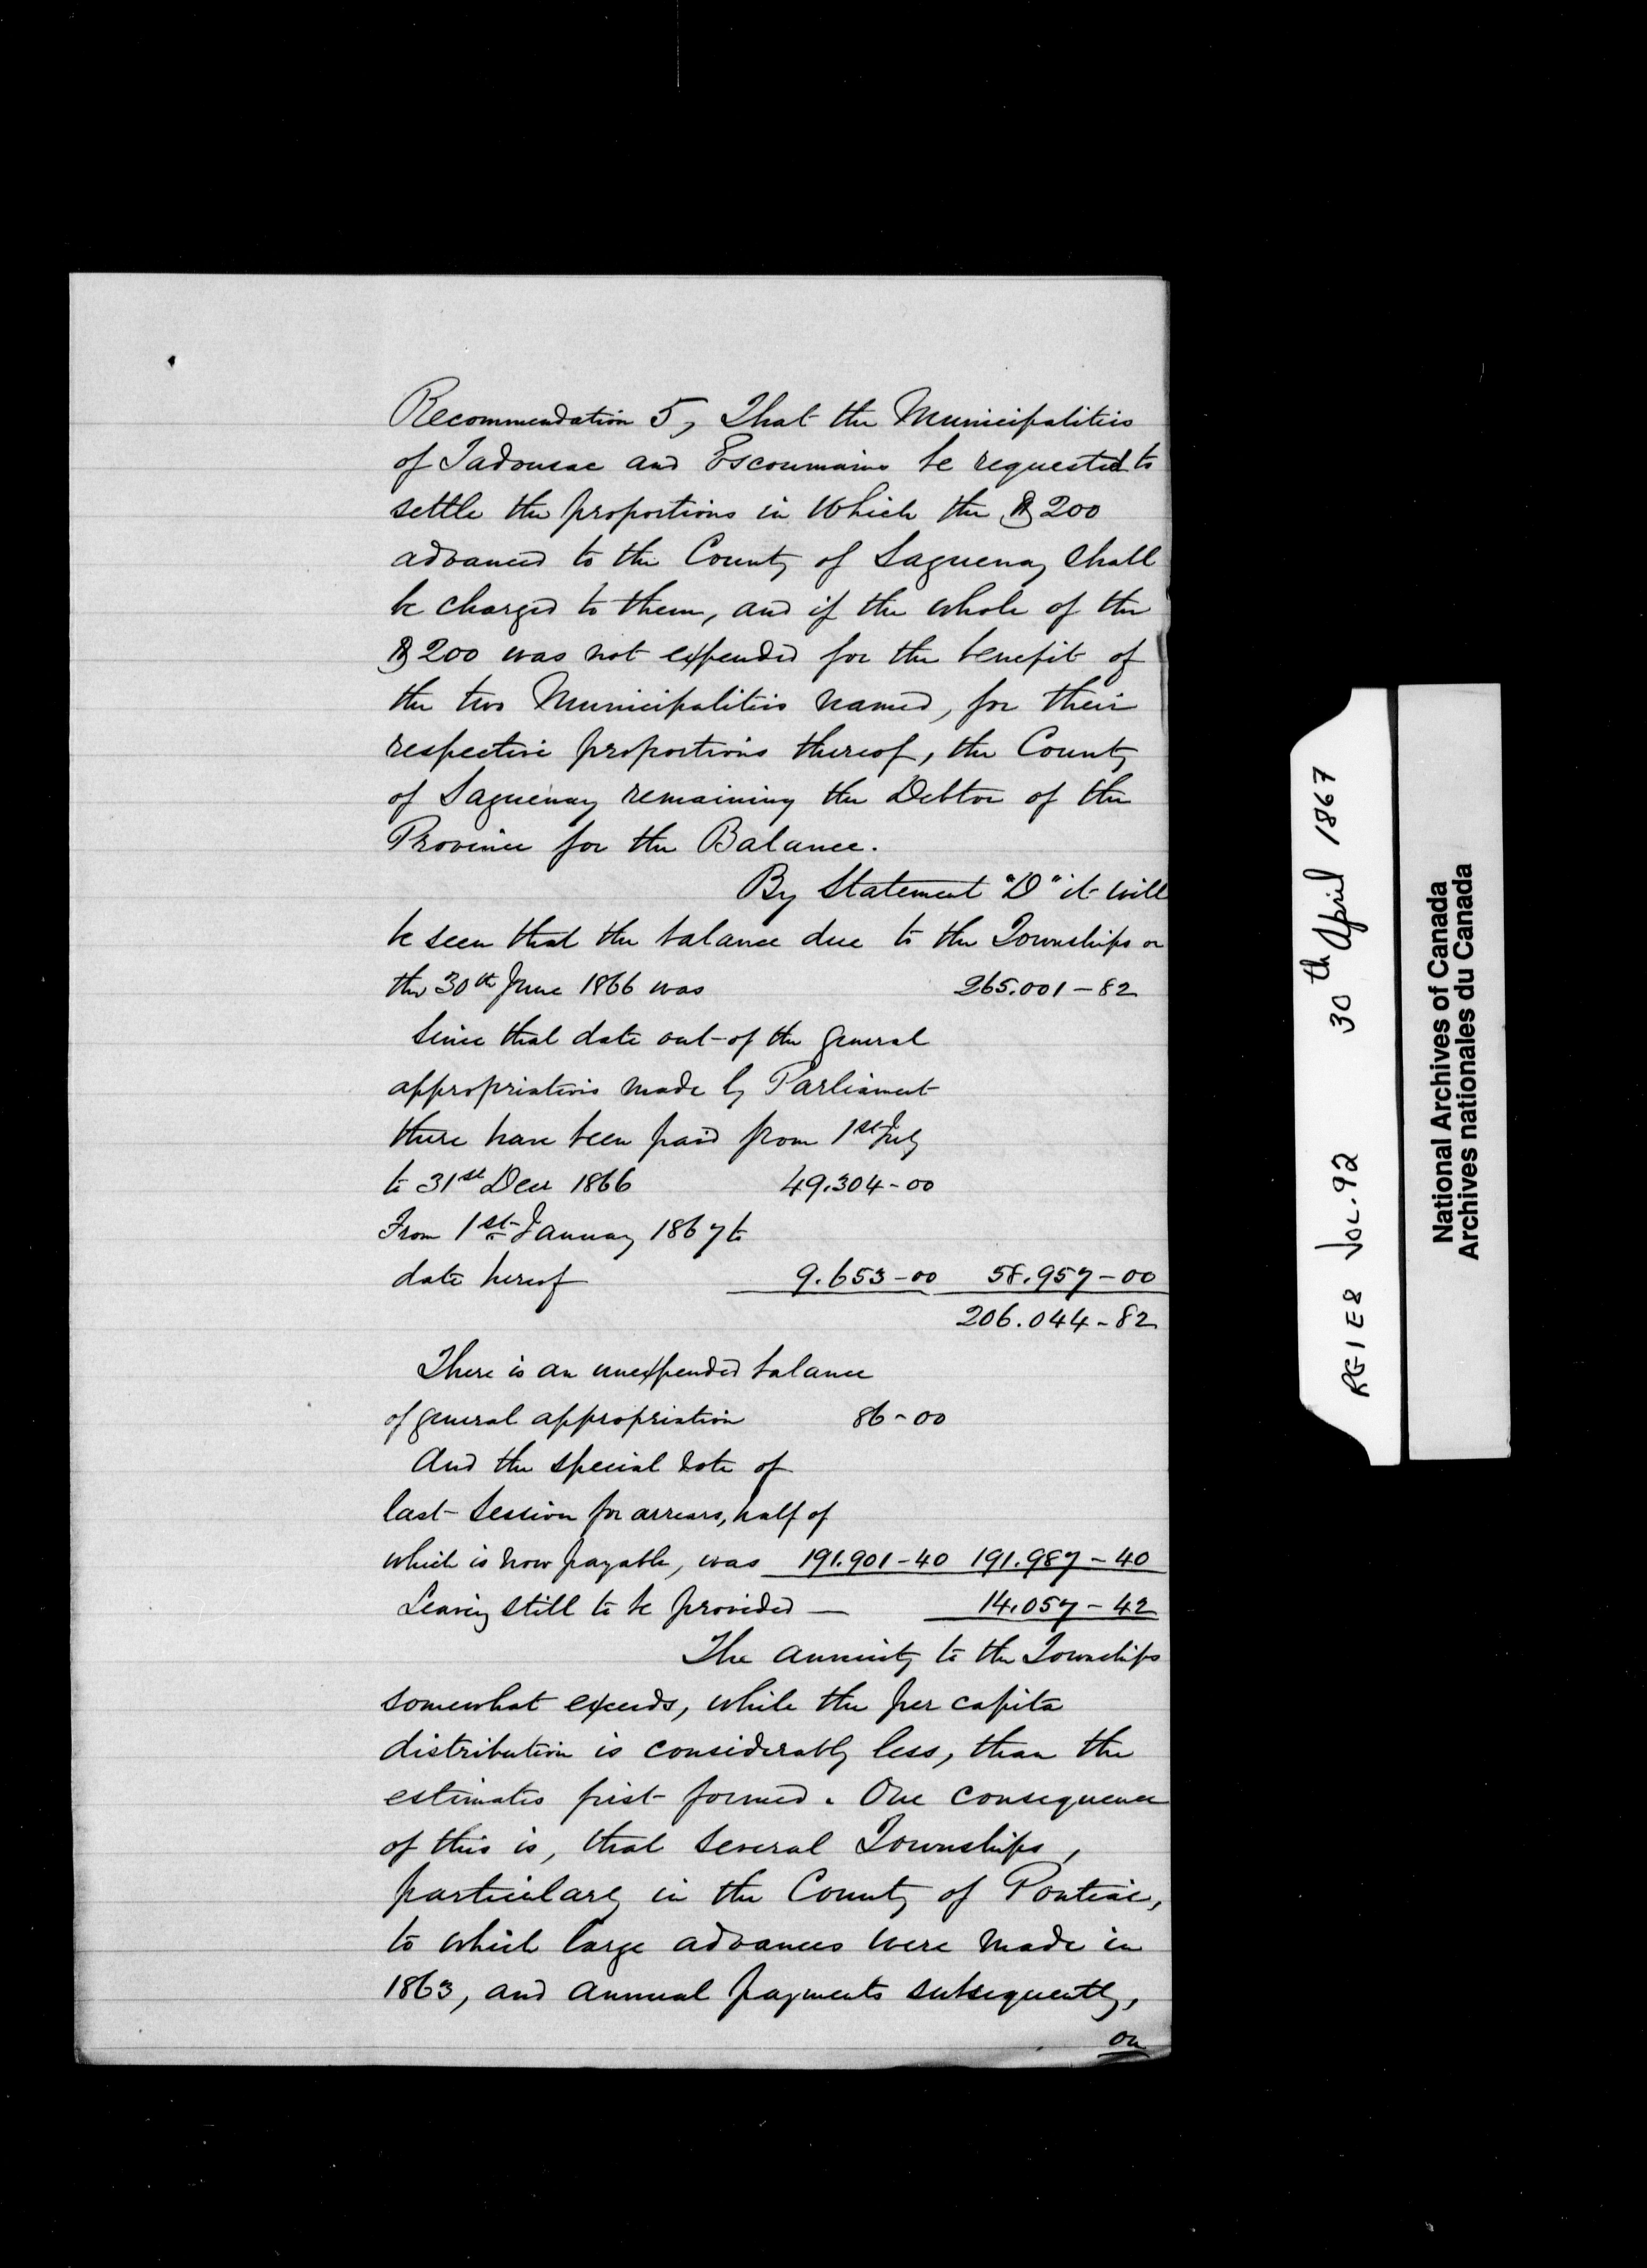 Recommendation 5, That the Municipalities
of Tadousac and Escoumains be requested to
settle the proportions in which the $200
advanced to the County of Saguenay shall
be charged to them, and if the whole of the
$200 was not expended for the benefit of
the two Municipalities named, for their
respective proportions thereof, the County
of Saguenay remaining the Debtor of the
Province for the Balance.
By Statement "D" it will
be seen that the balance due to the Townships on
the 30th June 1866 was 265.001-82
Since that date out of the general
appropriations made by Parliament
there have been paid from 1st July
to 31st Decr 1866 49.304-00
From 1st January 1867 to
date hereof 9.653-00 58.957-00
206.044-82
There is an unexpended balance
of general appropriation 86-00
And the special vote of
last Session for arrears, half of
which is now payable, was 191.901-40 191.987-40
Leaving still to be provided — 14.057-42
The annuity to the Townships
somewhat exceeds, while the per capita
distribution is considerably less, than the
estimates first formed. One consequence
of this is, that several Townships,
particularly in the County of Pontiac,
to which large advances were made in
1863, and annual payments subsequently,
on
RG1E8 VOL.92 30th April 1867
National Archives of Canada
Archives nationales du Canada